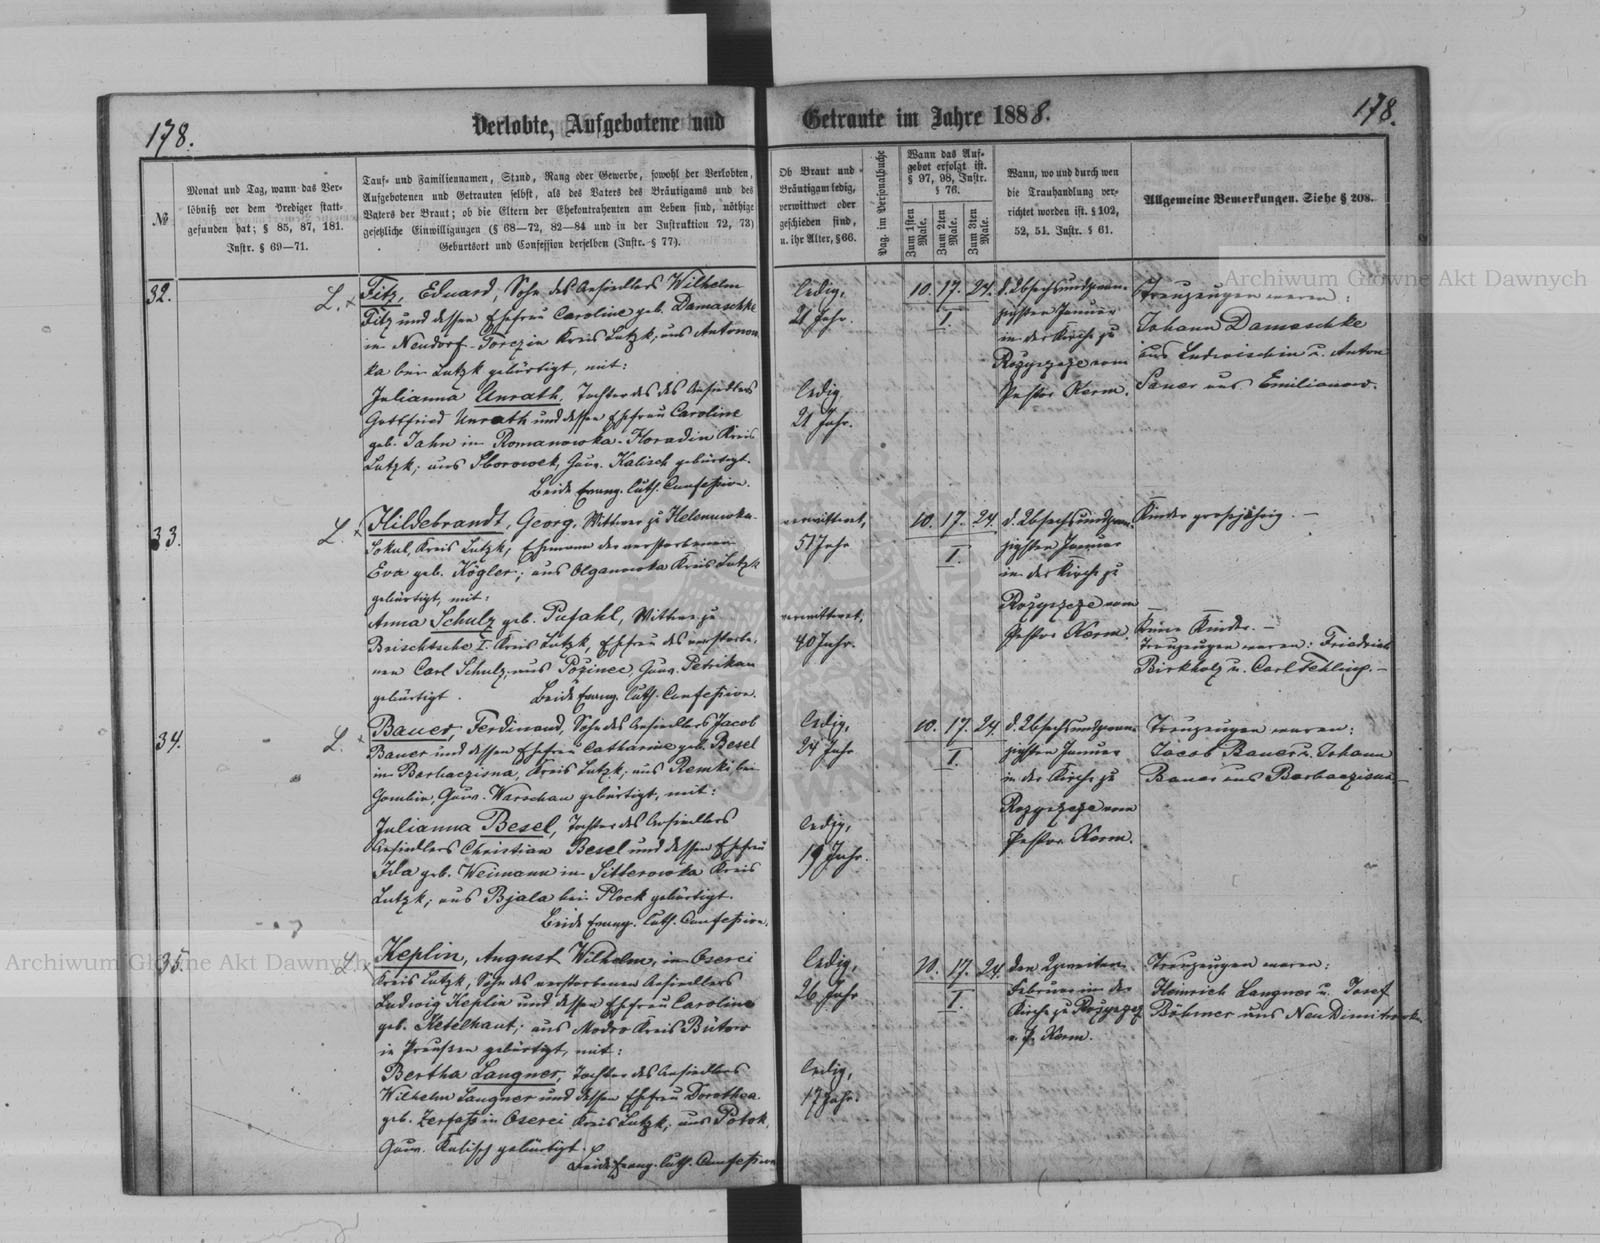 178.
Verlobte, Aufgebotene und
Getraute im Jahre 1888.
178.
№
Monat und Tag, wann das Ver-
löbniß vor dem Prediger statt-
gefunden hat; § 85, 87, 181.
Instr. § 69—71.
Tauf- und Familiennamen, Stand, Rang oder Gewerbe, sowohl der Verlobten,
Aufgebotenen und Getrauten selbst, als des Vaters des Bräutigams und des
Vaters der Braut; ob die Eltern der Ehekontrahenten am Leben sind, nöthige
gesetzliche Einwilligungen (§ 68—72, 82—84 und in der Instruktion 72, 73)
Geburtsort und Confession derselben (Instr. § 77).
Ob Braut und
Bräutigam ledig,
verwittwet oder
geschieden sind,
u. ihr Alter, § 66.
Pag. im Personalbuche
Wann das Auf-
gebot erfolgt ist.
§ 97, 98, Instr.
§ 76.
Zum 1sten Male.
Zum 2ten Male.
Zum 3ten Male.
Wann, wo und durch wen
die Trauhandlung ver-
richtet worden ist. § 102,
52, 54. Instr. § 61.
Allgemeine Bemerkungen. Siehe § 208.
32.
L. x
Fitz, Eduard, Sohn des Ansiedlers Wilhelm
Fitz und dessen Ehefrau Caroline geb. Damaschke
in Neudorf-Torczin Kreis Lutzk; aus Antonow
ka bei Lutzk gebürtigt, mit:
Julianna Unrath, Tochter des des Ansiedlers
Gottfried Unrath und dessen Ehefrau Caroline
geb. Jahn in Romanowka-Koradin Kreis
Lutzk; aus Sborowek, Guv. Kalisch gebürtigt.
Beide Evang. Luth. Confession.
ledig,
21 Jahr.
ledig,
21 Jahr.
10. 17. 24.
I.
d. 26 sechsundzwan-
zigsten Januar
in der Kirche zu
Rozyszcze vom
Pastor Kerm.
Trauzeugen waren:
Johann Damaschke
aus Ludwischin u. Anton
Sauer aus Emilianow.
33.
L. x
Hildebrandt, Georg, Wittwer zu Helenuwka-
Sokul, Kreis Lutzk, Ehemann der verstorbenen
Eva geb. Kögler; aus Olganowka Kreis Lutzk
gebürtigt, mit:
Anna Schulz geb. Pufahl, Wittwe zu
Brischtsche I. Kreis Lutzk, Ehefrau des verstorbe-
nen Carl Schulz, aus Pozinee, Guv. Petrikau
gebürtigt. Beide Evang. Luth. Confession.
verwittwet,
51 Jahr
verwittwet,
40 Jahr.
10. 17. 24.
I.
d. 26 sechsundzwan-
zigsten Januar
in der Kirche zu
Rozyszcze vom
Pastor Kerm.
Kinder großjährig. —
Keine Kinder. —
Trauzeugen waren: Friedrich
Birkholz u. Carl Fehling. —
34.
L.
Bauer, Ferdinand, Sohn des Ansiedlers Jacob
Bauer und dessen Ehefrau Catharine geb. Besel
in Barbaczisna, Kreis Lutzk; aus Remki bei
Gombin, Guv. Warschau gebürtigt, mit:
Julianna Besel, Tochter des Ansiedlers
Ansiedlers Christian Besel und dessen Ehefrau
Ida geb. Weimann in Sitterowka Kreis
Lutzk; aus Bjala bei Plock gebürtigt.
Beide Evang. Luth. Confession.
ledig,
24 Jahr
ledig,
19 Jahr.
10. 17. 24.
I.
d. 26 sechsundzwan-
zigsten Januar
in der Kirche zu
Rozyszcze vom
Pastor Kerm.
Trauzeugen waren:
Jacob Bauer u. Johann
Bauer aus Barbaczisna —
35.
L. x
Keplin, August Wilhelm, in Oserci
Kreis Lutzk, Sohn des verstorbenen Ansiedlers
Ludwig Keplin und dessen Ehefrau Caroline
geb. Ketelhaut; aus Modro Kreis Bütow
in Preußen gebürtigt, mit:
Bertha Langner, Tochter des Ansiedlers
Wilhelm Langner und dessen Ehefrau Dorothea
geb. Zerfaß in Oserci Kreis Lutzk; aus Potok,
Guv. Kalisch gebürtigt.
Beide Evang. Luth. Confession
ledig,
26 Jahr
ledig,
17 Jahr.
10. 17. 24.
I.
den 2 zweiten
Februar in der
Kirche zu Rozyszcze
v. P. Kerm.
Trauzeugen waren:
Heinrich Langner u. Josef
Böhmer aus Neu Dimitrowka.
Archiwum Główne Akt Dawnych
Archiwum Główne Akt Dawnych